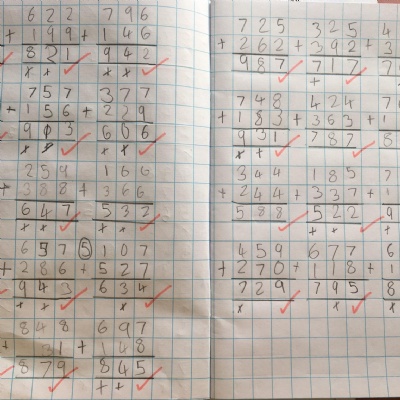 622 796
+ 199 + 146
821 942
x x x x
757 377
+ 156 + 229
903 606
x x x x
259 166
+ 388 + 366
647 532
x x x x
657 5 107
+ 286 + 527
943 634
x x x
848 697
+ 31 + 148
879 845
+ +
725 325 4
+ 262 + 392 + 3
987 717 7
+
748 424 7
+ 183 + 363 + 1
931 787 8
x +
344 185 7
+ 244 + 337 + 1
588 522 9
+ +
459 677 6
+ 270 + 118 + 1
729 795 8
x x